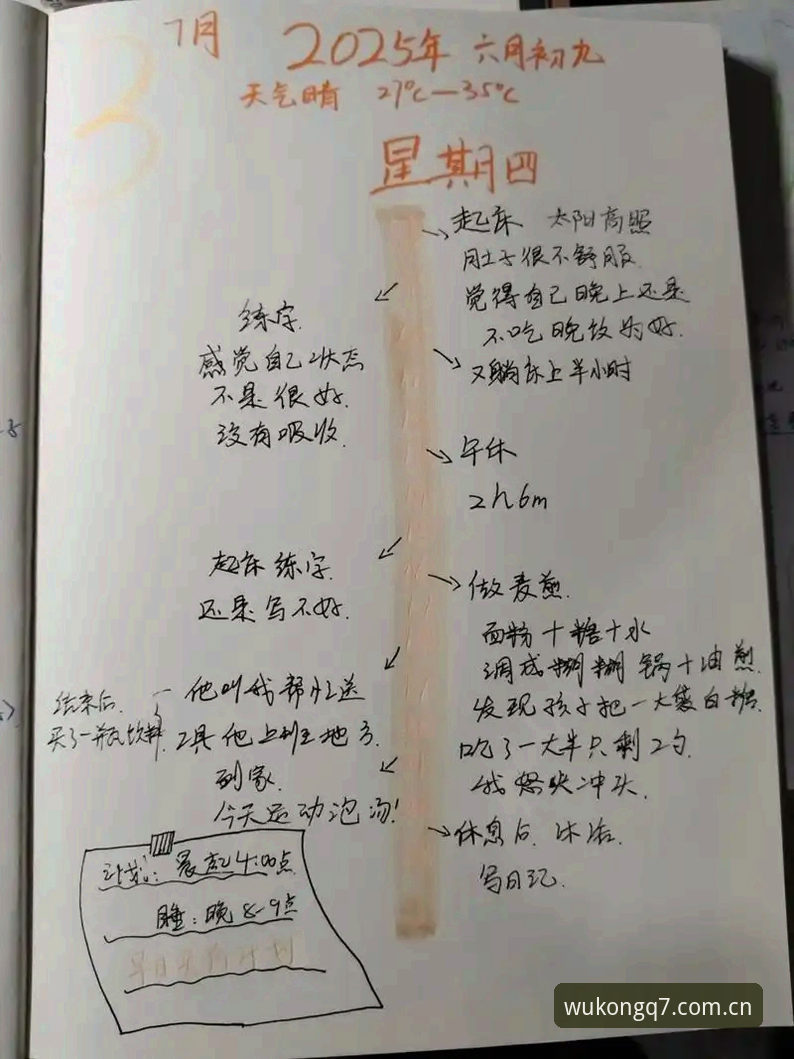 7月
3
2025年 六月初九
天气晴 27°C—35°C
星期四
起床 太阳高照
肚子很不舒服
觉得自己晚上还是
不吃晚饭为好.
练字.
感觉自己状态
不是很好.
没有吸收.
又躺床上半小时
午休
2h6m
起床练字.
还是写不好.
做麦煎.
面粉+糖+水
调成糊糊 锅+油煎.
发现孩子把一大袋白糖.
吃了一大半只剩2勺.
我怒火冲头.
他叫我帮忙送
工具他上班地方.
结束后.
买了一瓶饮料.
到家.
今天运动泡汤!
休息后. 沐浴.
写日记.
计划: 晨起4:00点.
睡:晚8-9点
wukongq7.com.cn